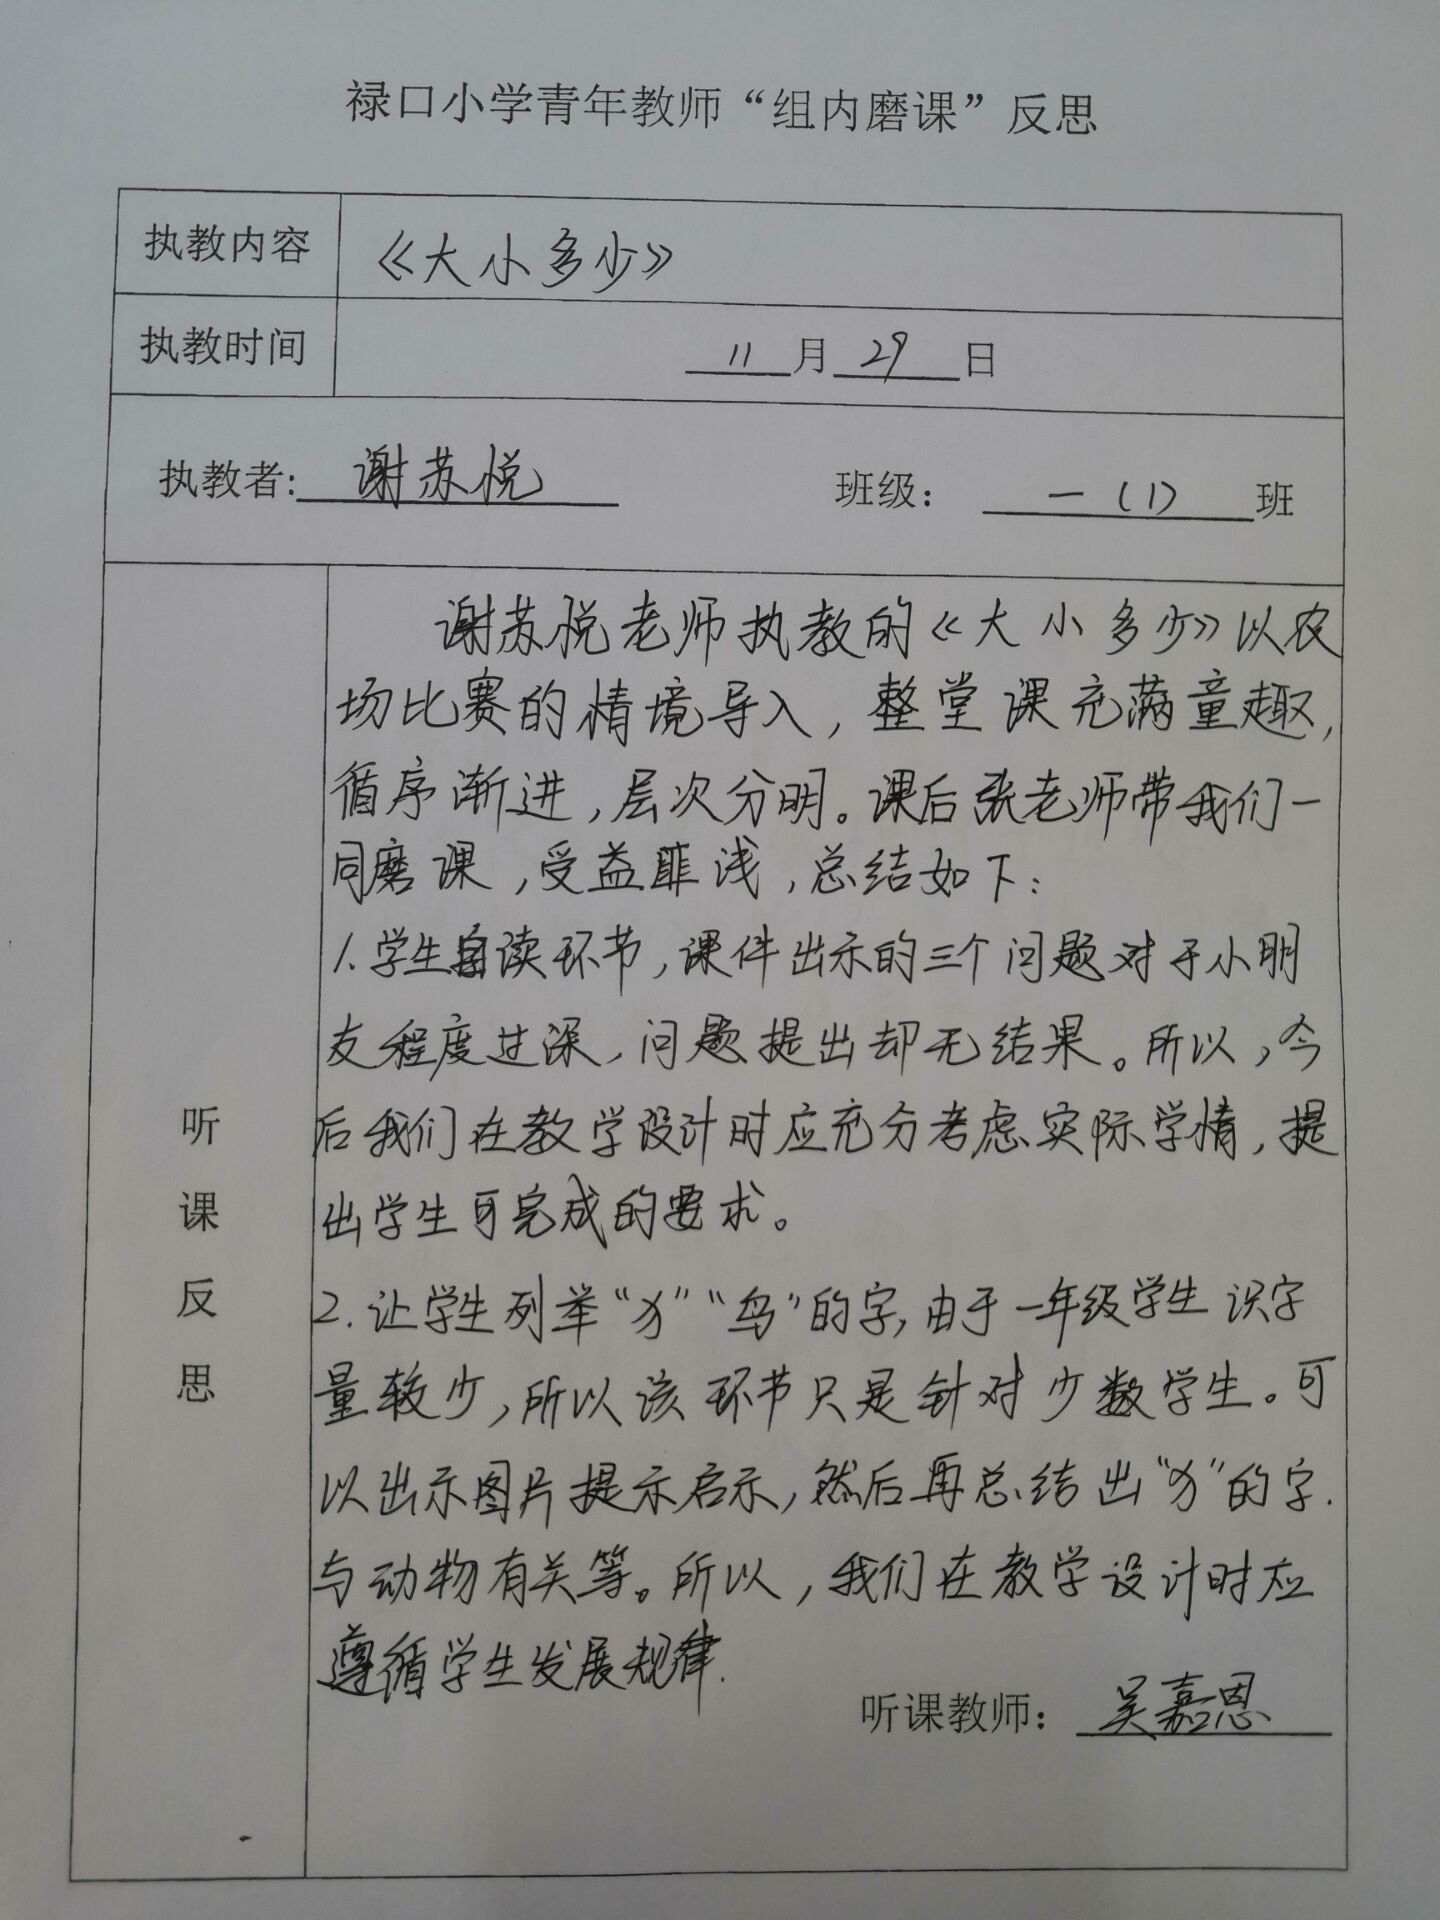 禄口小学青年教师“组内磨课”反思
执教内容 《大小多少》
执教时间 11月29日
执教者:谢苏悦 班级：一(1)班
听课反思
谢苏悦老师执教的《大小多少》以农
场比赛的情境导入，整堂课充满童趣，
循序渐进，层次分明。课后张老师带我们一
同磨课，受益匪浅，总结如下：
1.学生自读环节，课件出示的三个问题对于小朋
友程度过深，问题提出却无结果。所以，今
后我们在教学设计时应充分考虑实际学情，提
出学生可完成的要求。
2.让学生列举“犭”“鸟”的字，由于一年级学生识字
量较少，所以该环节只是针对少数学生。可
以出示图片提示启示，然后再总结出“犭”的字.
与动物有关等。所以，我们在教学设计时应
遵循学生发展规律.
听课教师：吴嘉恩